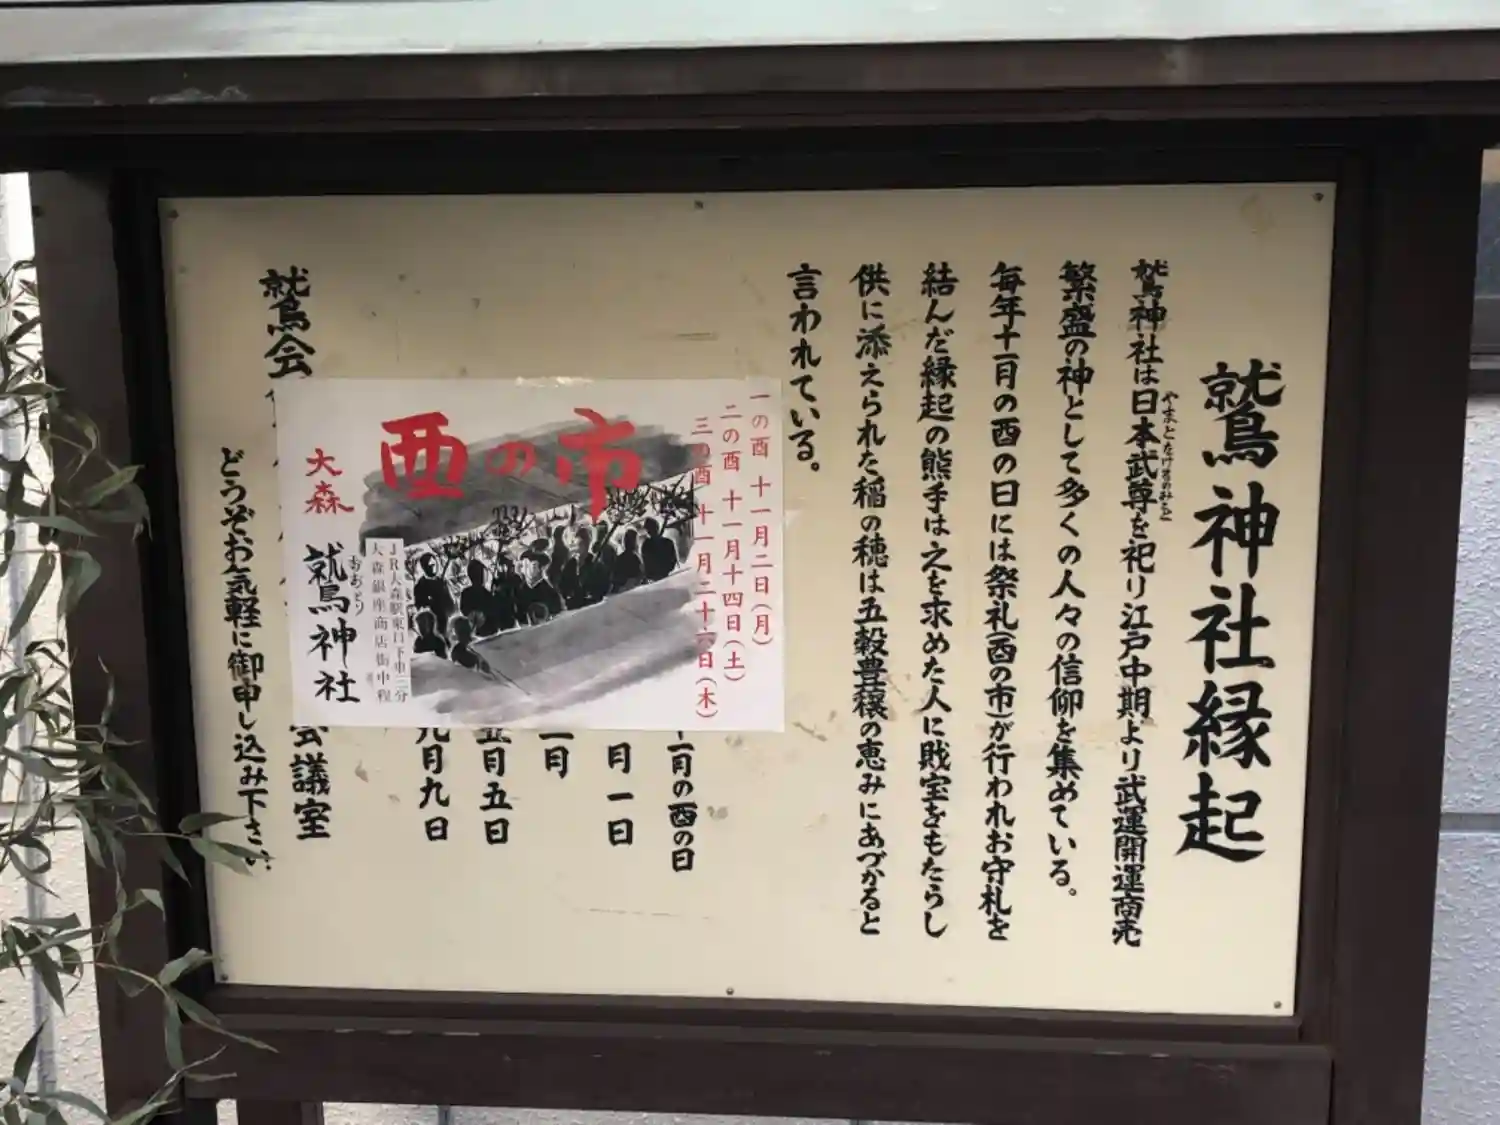 鷲神社縁起
鷲神社は日本武尊を祀り江戸中期より武運開運商売
やまとたけるのみこと
繁盛の神として多くの人々の信仰を集めている。
毎年十一月の酉の日には祭礼(酉の市)が行われお守札を
結んだ縁起の熊手は之を求めた人に財宝をもたらし
供に添えられた稲の穂は五穀豊穣の恵みにあづかると
言われている。
一の酉 十一月二日(月)
二の酉 十一月十四日(土)
三の酉 十一月二十六日(木)
酉の市
JR大森駅東口下車三分
大森銀座商店街中程
大森
鷲神社
おおとり
一月の酉の日
月一日
二月
五月五日
九月九日
鷲会
会議室
どうぞお気軽に御申し込み下さい